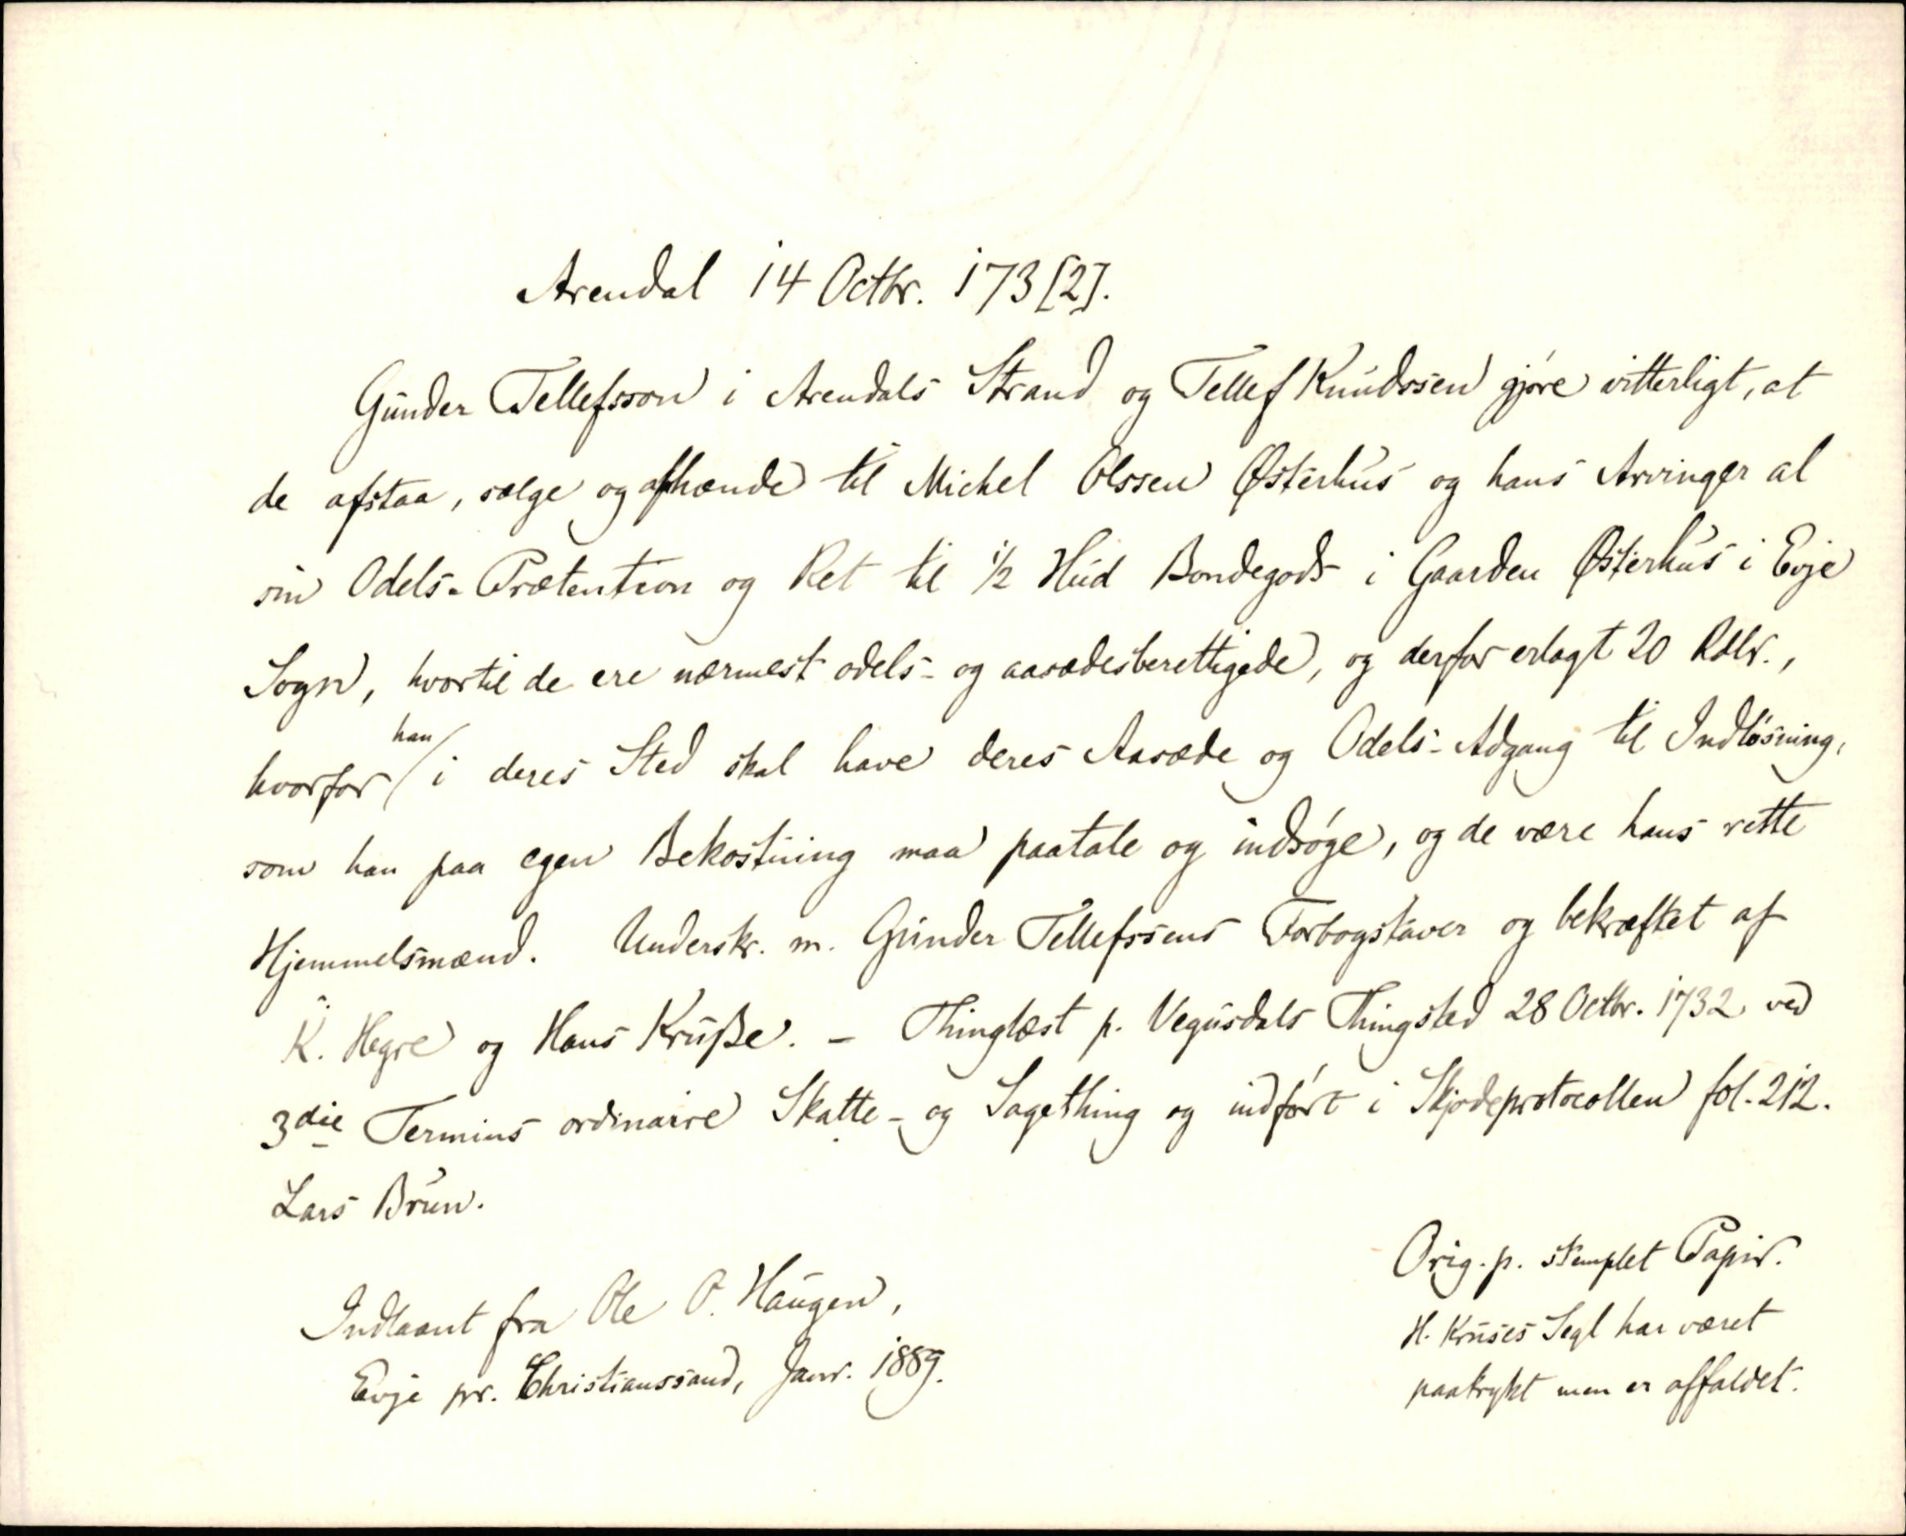 Arendal 14 Octbr. 173[2].
Gunder Tellefsson i Arendals Strand og Tellef Knudssen gjøre vitterligt, at
de afstaa, sælge og afhænde til Michel Olssen Østerhus og hans Arvinger al
sin Odels-Prætention og Ret til 1/2 Hud Bondegods i Gaarden Østerhus i Evje
Sogn, hvortil de ere nærmest odels- og aasædesberettigede, og derfor erlagt 20 Rdlr.,
hvorfor han i deres Sted skal have deres Aasæde og Odels-Adgang til Indløsning,
som han paa egen Bekostning maa paatale og indsøge, og de være hans rette
Hjemmelsmænd. Underskr. m. Gunder Tellefssens Forbogstaver og bekræftet af
K. Hegre og Hans Kruße. - Thinglæst p. Vegusdals Thingsted 28 Octbr. 1732 ved
3die Termins ordinaire Skatte- og Sagething og indført i Skjødeprotocollen fol. 212.
Lars Brun.
Indlaant fra Ole O. Haugen,
Evje pr. Christianssand, Janr. 1889.
Orig. p. stemplet Papir.
H. Kruses Segl har været
paatrykt men er affaldet.